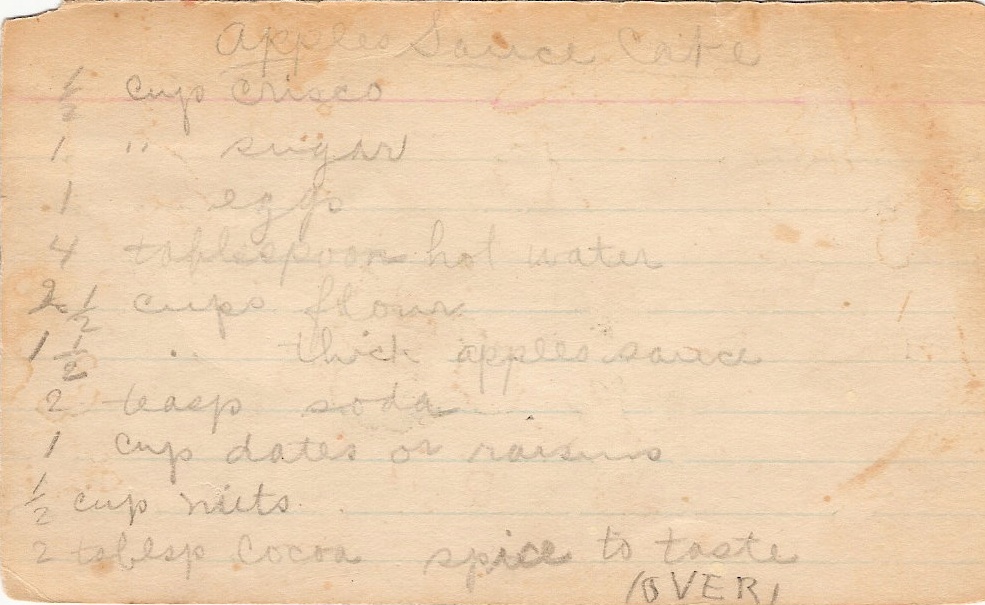 Apples Sauce Cake
1/2 cup Crisco
1 " sugar
1 eggs
4 tablespoon hot water
2 1/2 cups flour
1 1/2 " thick apples sauce
2 teasp soda
1 cup dates or raisins
1/2 cup nuts
2 tablesp Cocoa spice to taste
(OVER)